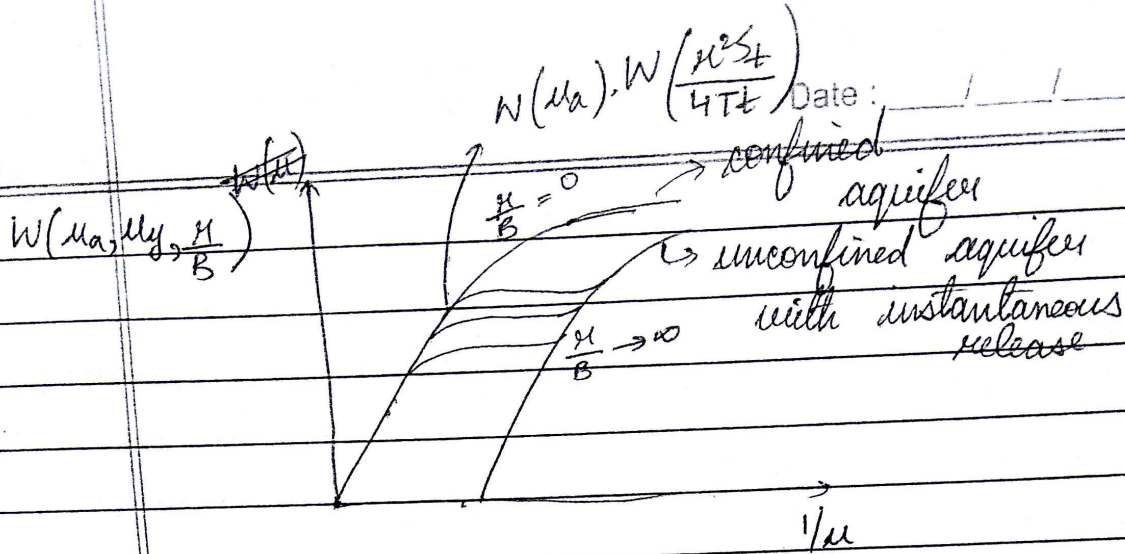 W(μa), W(r²St/4Tt)
Date : ___/___/___
W(μ)
W(μa, μy, r/B)
r/B = 0
confined
aquifer
unconfined aquifer
with instantaneous
release
r/B → ∞
1/μ